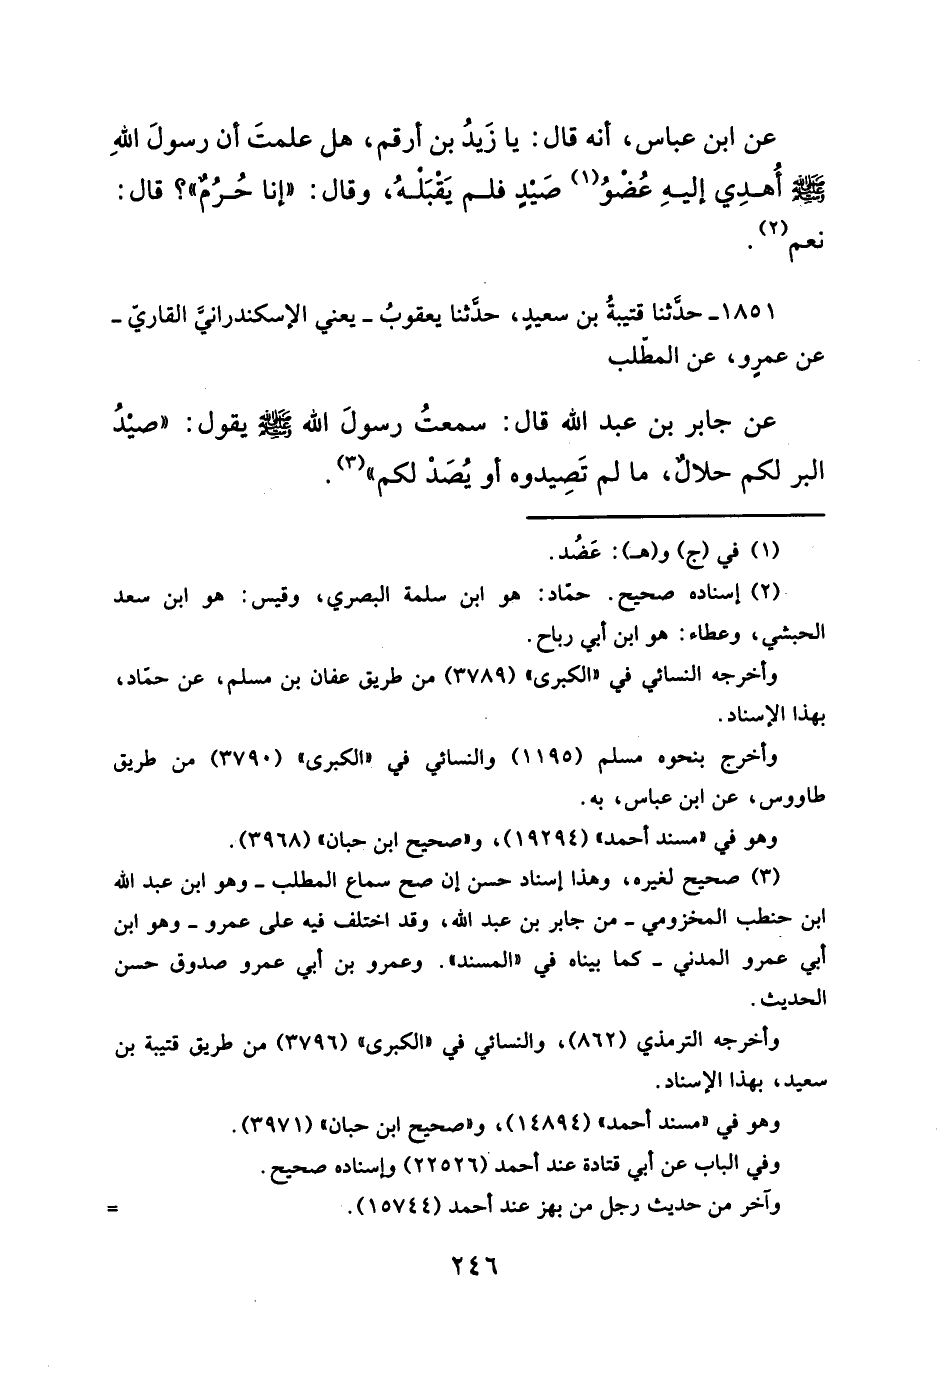 عن ابن عباس، أنه قال: يا زَيدُ بن أرقم، هل علمتَ أن رسولَ اللهِ
ﷺ أُهـدِي إليـهِ عُضْوُ(١) صَيْدٍ فلـم يَقْبَلْـهُ، وقال: «إنا حُـرُمٌ»؟ قال:
نعم(٢).
١٨٥١ـ حدَّثنا قتيبةُ بن سعيدٍ، حدَّثنا يعقوبُ ـ يعني الإسكندرانيَّ القاريّ ـ
عن عمرٍو، عن المطّلب
عن جابر بن عبد الله قال: سمعتُ رسولَ الله ﷺ يقول: «صيْدُ
البر لكم حلالٌ، ما لم تَصِيدوه أو يُصَدْ لكم»(٣).
(١) في (ج) و(هـ): عَضُد.
(٢) إسناده صحيح. حمّاد: هو ابن سلمة البصري، وقيس: هو ابن سعد
الحبشي، وعطاء: هو ابن أبي رباح.
وأخرجه النسائي في «الكبرى» (٣٧٨٩) من طريق عفان بن مسلم، عن حمّاد،
بهذا الإسناد.
وأخرج بنحوه مسلم (١١٩٥) والنسائي في «الكبرى» (٣٧٩٠) من طريق
طاووس، عن ابن عباس، به.
وهو في «مسند أحمد» (١٩٢٩٤)، و«صحيح ابن حبان» (٣٩٦٨).
(٣) صحيح لغيره، وهذا إسناد حسن إن صح سماع المطلب ـ وهو ابن عبد الله
ابن حنطب المخزومي ـ من جابر بن عبد الله، وقد اختلف فيه على عمرو ـ وهو ابن
أبي عمرو المدني ـ كما بيناه في «المسند». وعمرو بن أبي عمرو صدوق حسن
الحديث.
وأخرجه الترمذي (٨٦٢)، والنسائي في «الكبرى» (٣٧٩٦) من طريق قتيبة بن
سعيد، بهذا الإسناد.
وهو في «مسند أحمد» (١٤٨٩٤)، و«صحيح ابن حبان» (٣٩٧١).
وفي الباب عن أبي قتادة عند أحمد (٢٢٥٢٦) وإسناده صحيح.
وآخر من حديث رجل من بهز عند أحمد (١٥٧٤٤). =
٢٤٦